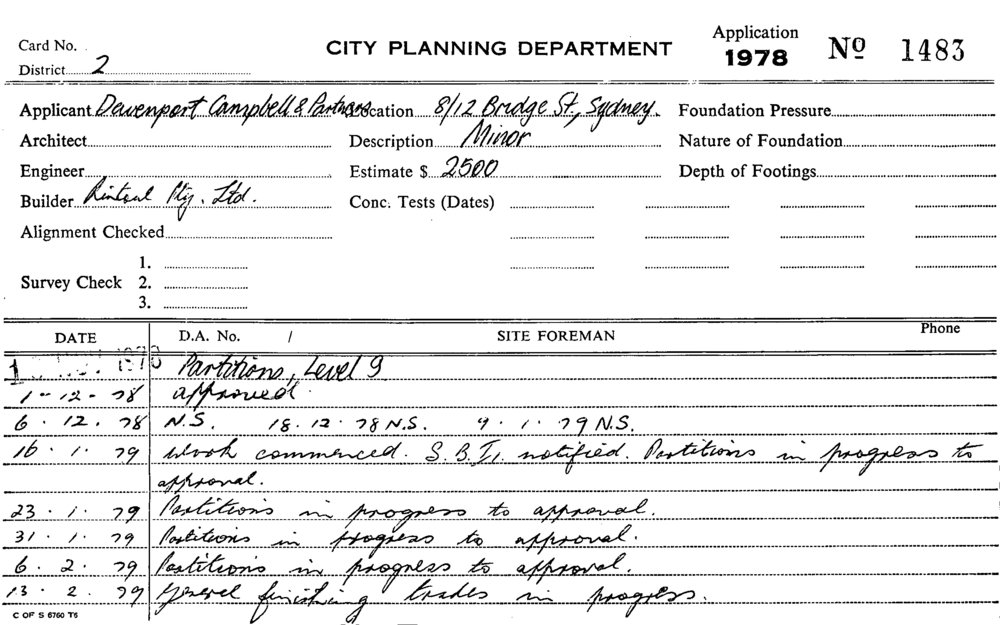 Card No.
District 2
CITY PLANNING DEPARTMENT
Application
1978
Nº 1483
Applicant Devenport Campbell & Partners Location 8/12 Bridge St, Sydney. Foundation Pressure
Architect Description Minor Nature of Foundation
Engineer Estimate $ 2500 Depth of Footings
Builder Pty. Ltd. Conc. Tests (Dates)
Alignment Checked
Survey Check 1.
2.
3.
DATE D.A. No. / SITE FOREMAN Phone
Partitions, Level 9
1-12-78 approved
6.12.78 N.S. 18.12.78 N.S. 9.1.79 N.S.
16.1.79 Work commenced. S.B.I. notified. Partitions in progress to
approval.
23.1.79 Partitions in progress to approval.
31.1.79 Partitions in progress to approval.
6.2.79 Partitions in progress to approval.
13.2.79 General finishing trades in progress.
C OF S 6760 T6